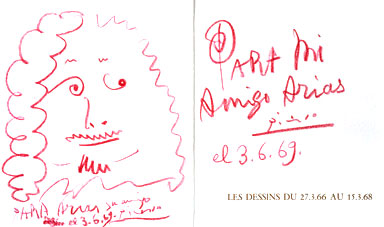 PARA Arias su amigo
el 3.6.69. Picasso
PARA Mi
Amigo Arias
Picasso
el 3.6.69.
LES DESSINS DU 27.3.66 AU 15.3.68